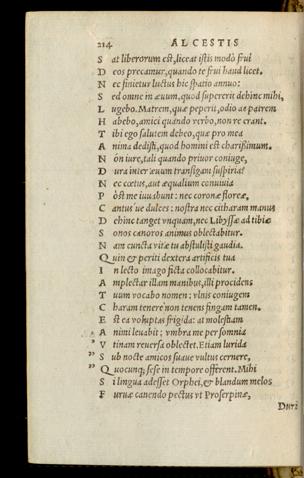 214 ALCESTIS
S at liberorum est, liceat istis modò frui
D eos precamur, quando te frui haud licet.
N ec finietur luctus hic spatio annuo:
S ed omne in æuum, quod supererit dehinc mihi,
L ugebo. Matrem, quæ peperit, odio ac patrem
H abebo, amici quando verbo, non re erant.
T ibi ego salutem debeo, quæ pro mea
A nima dedisti, quod homini est charissimum.
N ón iure, tali quando priuor coniuge,
D ura inter æuum transigam suspiria?
N ec cœtus, aut æqualium conuiuia
P òst me iuuabunt: nec coronæ floreæ,
C antus ue dulces: nostra nec citharam manus
D ehinc tanget vnquam, nec Libyssæ ad tibiæ
S onos canoros animus oblectabitur.
N am cuncta vitæ tu abstulisti gaudia.
Q uin & periti dextera artificis tua
I n lecto imago ficta collocabitur.
A mplectar illam manibus, illi procidens
T uum vocabo nomen: vlnis coniugem
C haram tenere non tenens fingam tamen.
E st ea voluptas frigida: at molestiam
A nimi leuabit: vmbra me per somnia
" V tinam reuersa oblectet. Etiam lurida
" S ub nocte amicos suaue vultus cernere,
" Q uocunq; sese in tempore offerent. Mihi
S i lingua adesset Orphei, & blandum melos
F uruæ canendo pectus vt Proserpinæ,
Duri